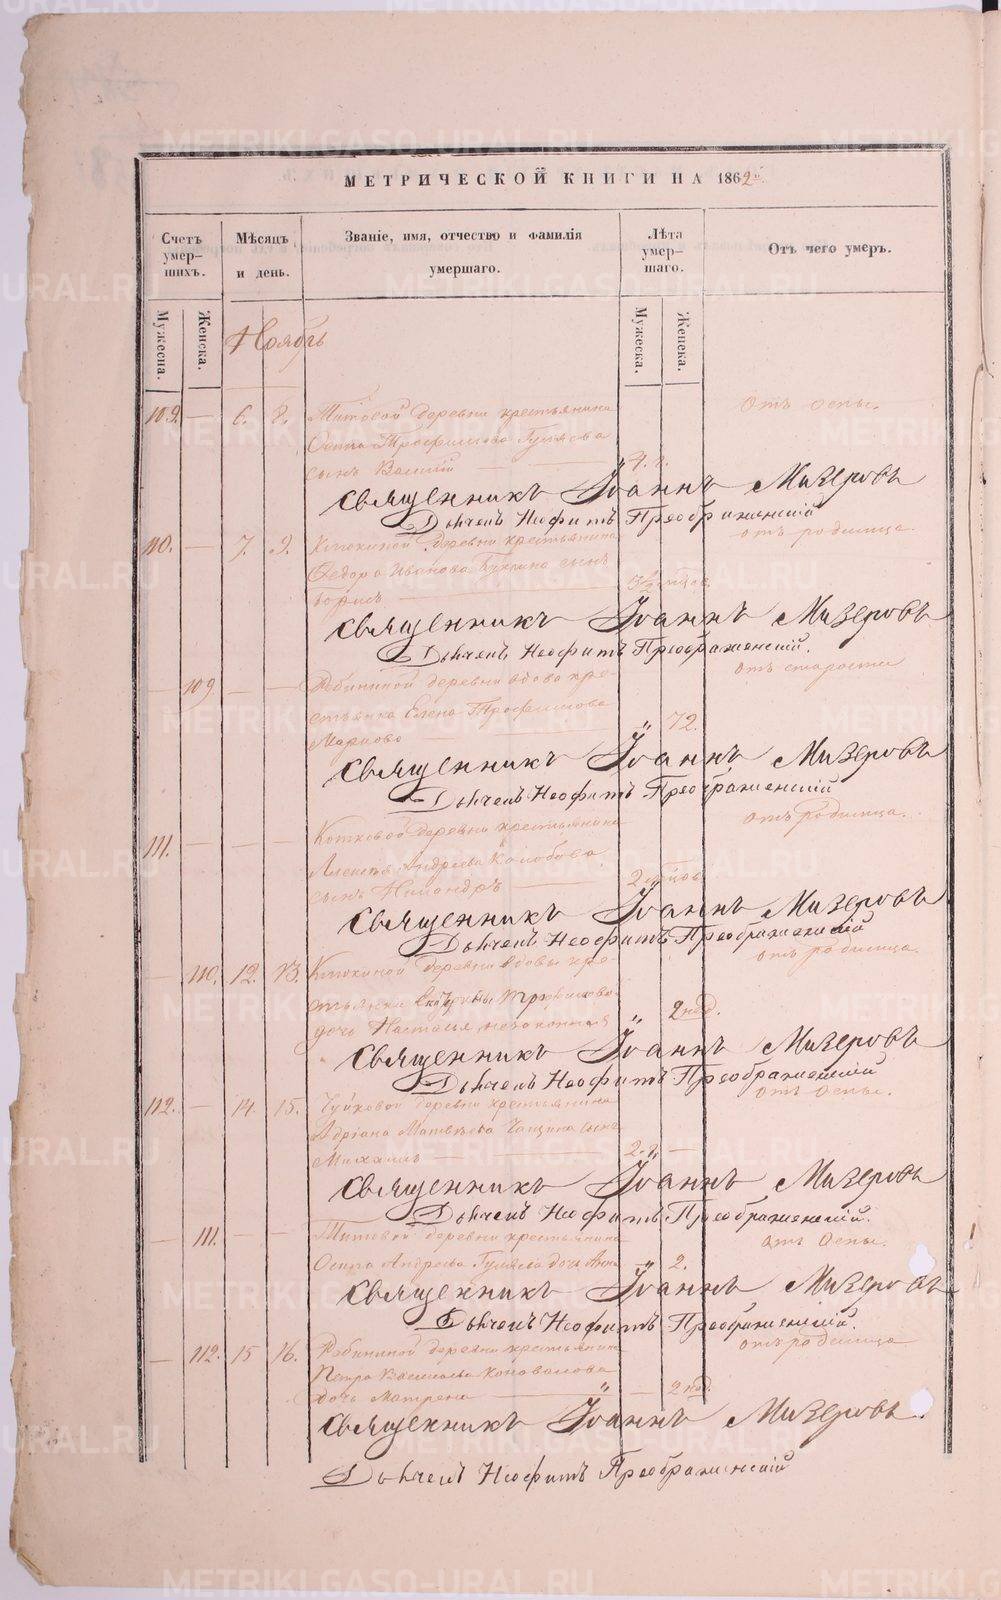 МЕТРИЧЕСКОЙ КНИГИ НА 1862й
Счетъ умер-шихъ.
Мѣсяцъ и день.
Званіе, имя, отчество и фамилія умершаго.
Лѣта умер-шаго.
Отъ чего умеръ.
Мужеска.
Женска.
Мужеска.
Женска.
Ноябрь
109. — 6. 8. Титовой деревни крестьянина Отъ оспы.
Осипа Трофимова Гуляева
сынъ Василій — 4. г.
Священникъ Іоаннъ Мизеровъ
Дьячекъ Неофитъ Преображенскій
110. — 7. 9. Клюкиной деревни крестьянина отъ родимца
Федора Иванова сынъ
Борисъ —
Священникъ Іоаннъ Мизеровъ
Дьячекъ Неофитъ Преображенскій.
— 109 — — Рябининой деревни вдова кре- отъ старости
стьянка Елена Трофимова
Маркова 72.
Священникъ Іоаннъ Мизеровъ
Дьячекъ Неофитъ Преображенскій
111. — — — деревни крестьянина отъ родимца.
Алексѣя Андреева Колобова
сынъ Никандръ — 2
Священникъ Іоаннъ Мизеровъ
Дьячекъ Неофитъ Преображенскій
— 110. 12. 13. Клюкиной деревни вдовы кре- отъ родимца.
стьянки
дочь Настасья незаконная 2 нед.
Священникъ Іоаннъ Мизеровъ
Дьячекъ Неофитъ Преображенскій
112. — 14. 15. деревни крестьянина отъ Оспы.
Адріана Матвѣева сынъ
Михаилъ — 2. г. —
Священникъ Іоаннъ Мизеровъ
Дьячекъ Неофитъ Преображенскій.
— 111. — — Титовой деревни крестьянина отъ Оспы.
Осипа Андреева Гуляева дочь Анна — 2.
Священникъ Іоаннъ Мизеровъ
Дьячекъ Неофитъ Преображенскій.
— 112. 15 16. Рябининой деревни крестьянина отъ родимца
Петра Васильева Коновалова
дочь Матрена — 2 нед.
Священникъ Іоаннъ Мизеровъ
Дьячекъ Неофитъ Преображенскій
METRIKI.GASO-URAL.RU